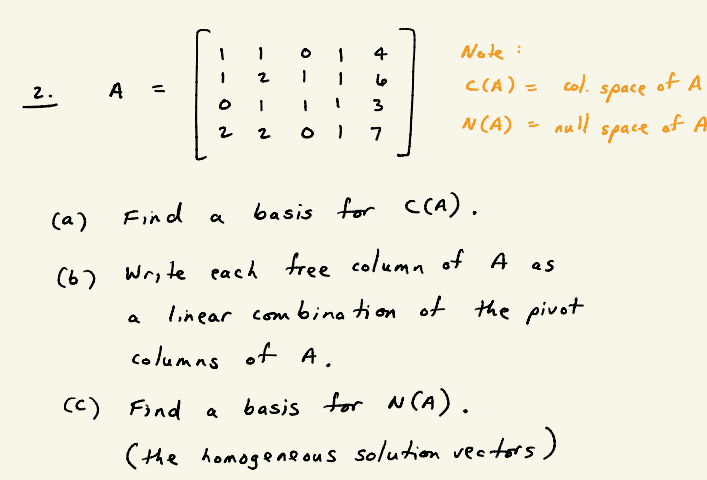 2. A = [ 1 1 0 1 4
1 2 1 1 6
0 1 1 1 3
2 2 0 1 7 ]
Note :
C(A) = col. space of A
N(A) = null space of A
(a) Find a basis for C(A).
(b) Write each free column of A as
a linear combination of the pivot
columns of A.
(c) Find a basis for N(A).
(the homogeneous solution vectors)